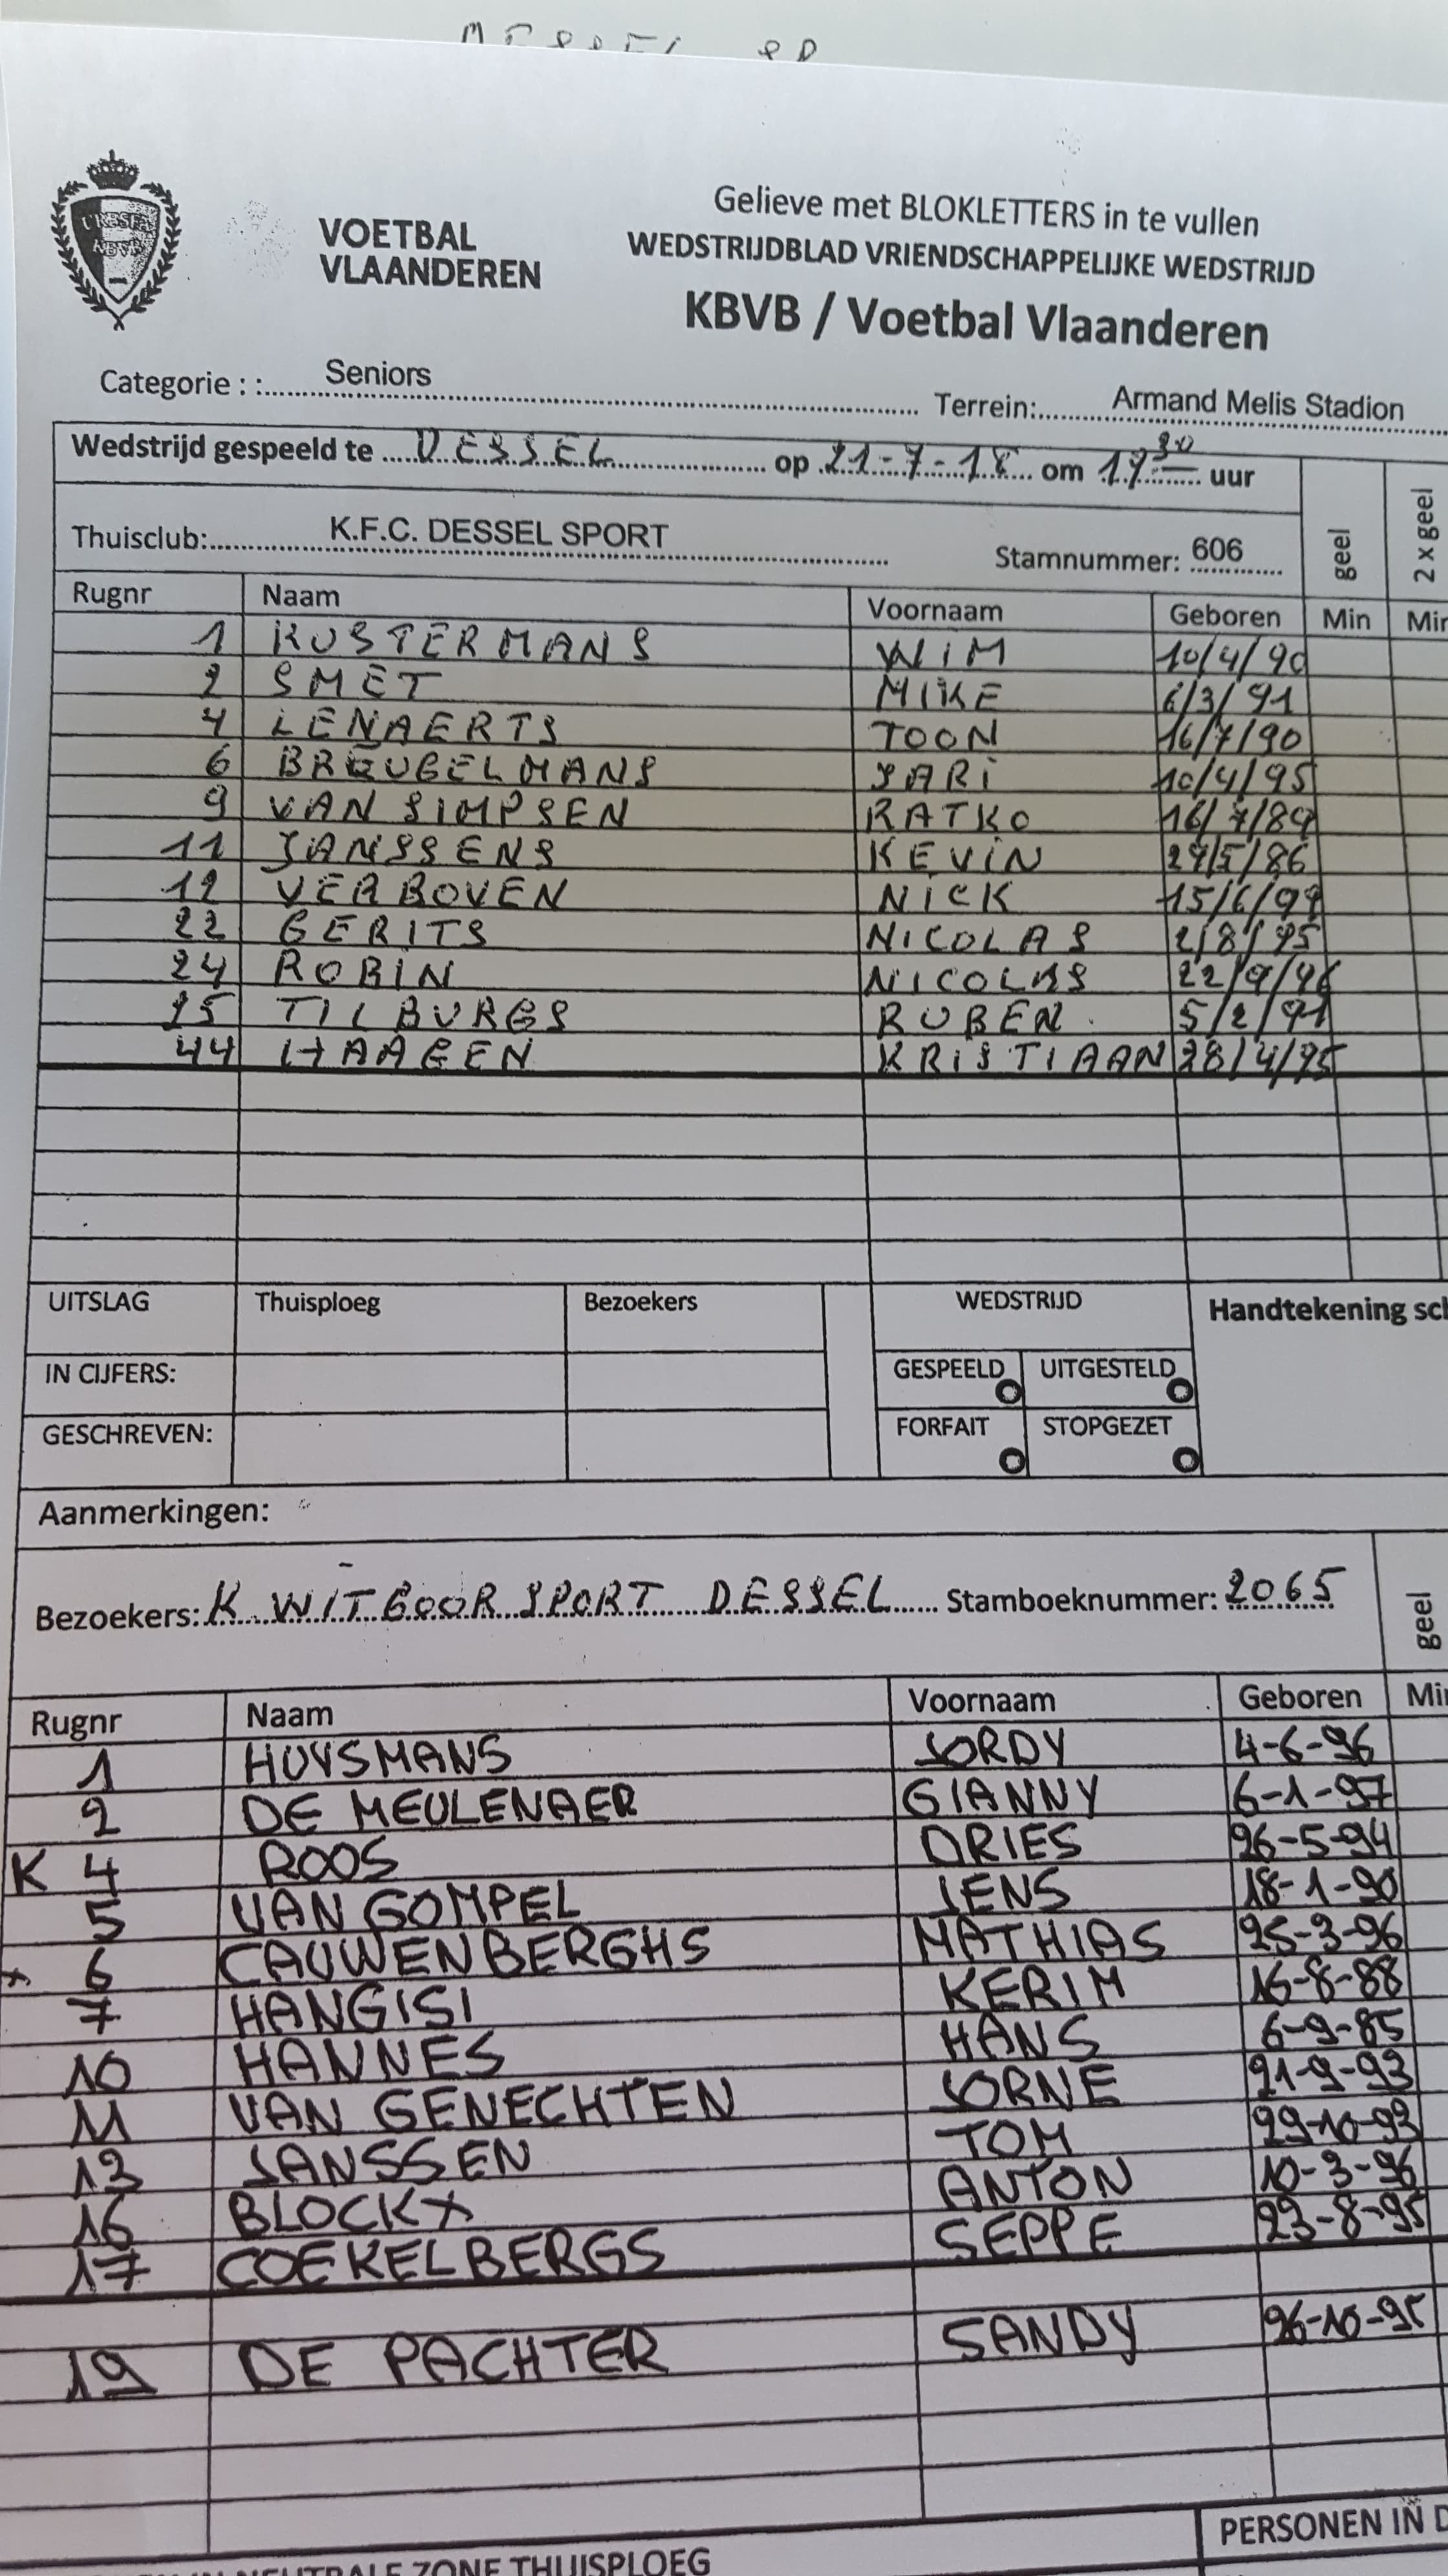 VOETBAL
VLAANDEREN
Gelieve met BLOKLETTERS in te vullen
WEDSTRIJDBLAD VRIENDSCHAPPELIJKE WEDSTRIJD
KBVB / Voetbal Vlaanderen
Categorie : : Seniors Terrein: Armand Melis Stadion
Wedstrijd gespeeld te DESSEL op 21-7-18 om 19 30 uur
geel 2 x geel
Thuisclub: K.F.C. DESSEL SPORT Stamnummer: 606
Rugnr Naam Voornaam Geboren Min Min
1 KUSTERMANS WIM 10/4/90
2 SMET MIKE 6/3/91
4 LENAERTS TOON 16/7/90
6 BREUGELMANS JARI 10/4/95
9 VAN SIMPSEN RATKO 16/7/89
11 JANSSENS KEVIN 27/5/86
12 VERBOVEN NICK
22 GERITS NICOLAS 2/8/95
24 ROBIN NICOLAS 22/9/96
25 TILBURGS RUBEN 5/2/91
44 HAAGEN KRISTIAAN 28/4/95
UITSLAG Thuisploeg Bezoekers WEDSTRIJD Handtekening
IN CIJFERS: GESPEELD UITGESTELD
GESCHREVEN: FORFAIT STOPGEZET
Aanmerkingen:
Bezoekers: K. WITGOOR SPORT DESSEL Stamboeknummer: 2065 geel
Rugnr Naam Voornaam Geboren Min
1 HUYSMANS JORDY 4-6-96
2 DE MEULENAER GIANNY 6-1-97
K 4 ROOS DRIES 26-5-94
5 VAN GOMPEL JENS 18-1-90
x 6 CAUWENBERGHS MATHIAS 25-3-96
7 HANGISI KERIM 16-8-88
10 HANNES HANS 6-9-85
11 VAN GENECHTEN JORNE 21-9-93
13 JANSSEN TOM 29-10-93
16 BLOCKX ANTON 10-3-96
17 COEKELBERGS SEPPE 23-8-95
19 DE PACHTER SANDY 26-10-95
PERSONEN IN D
NEUTRALE ZONE THUISPLOEG